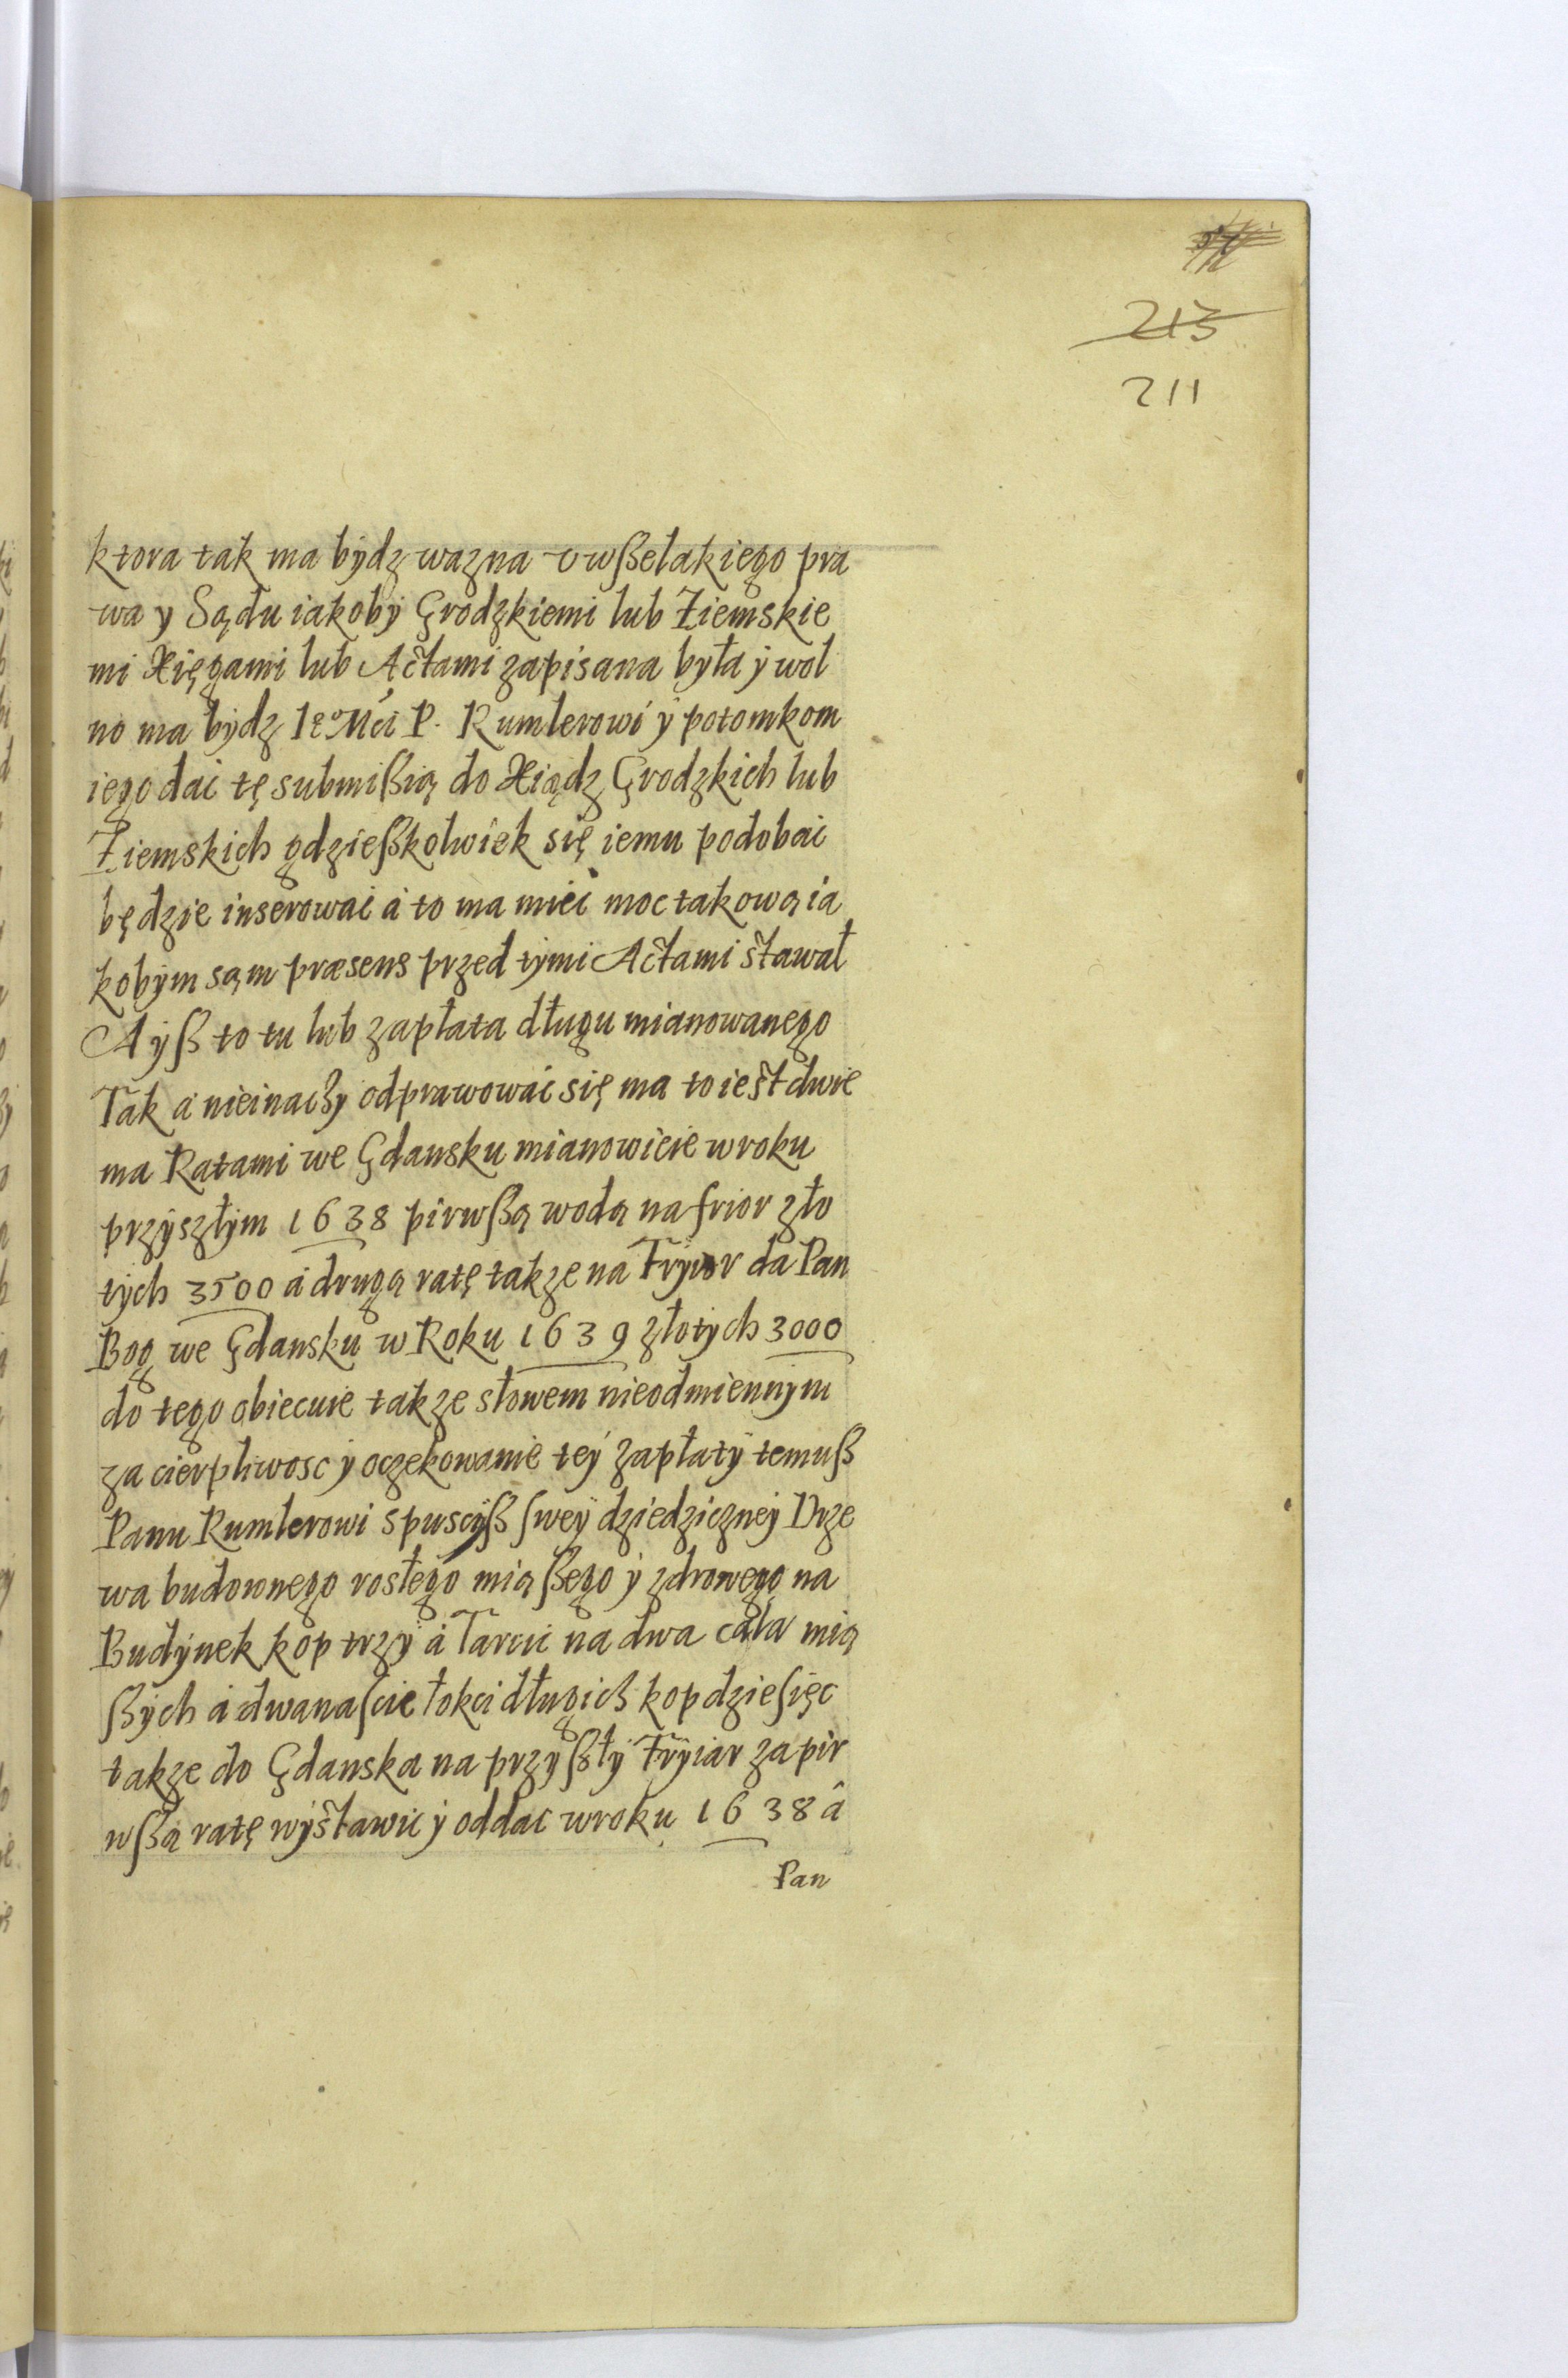 213
211
ktora tak ma bydz wazna v wßelakiego pra
wa y Sądu iakoby Grodzkiemi lub Ziemskie
mi Xięgami lub Actami zapisana była ÿ wol
no ma bÿdz Ie° Mći P. Rumlerowi ÿ potomkom
iego dać tę submißią do Xiądz Grodzkich lub
Ziemskich gdzießkolwiek się iemu podobać
będzie inserować á to ma mieć moc takową ia
kobÿm sąm præsens przed tÿmi Actami stawał
A ÿß to tu lub zapłata długu mianowanego
Tak á nieinaczÿ odprawować się ma to iest dwie
ma Ratami we Gdansku mianowicie w roku
przÿszłÿm 1638 pirwßą wodą na frior zło
tÿch 3500 á drugą ratę takze na Frÿior da Pan
Bog we Gdansku w Roku 1639 złotÿch 3000
do tego obiecuie takze słowem nieodmiennÿm
za cierpliwosc ÿ oczekowanie teÿ zapłatÿ temuß
Panu Rumlerowi s pusczÿß sweÿ dziedziczneÿ Drze
wa budownego rosłego miąßego ÿ zdrowego na
Budÿnek kop trzÿ á Tarcic na dwa cala mią
ßÿch á dwanascie łokci długich kop dziesięc
takze do Gdanska na przÿßłÿ Frÿiar za pir
wßą ratę wÿstawic ÿ oddac w roku 1638 â
Pan